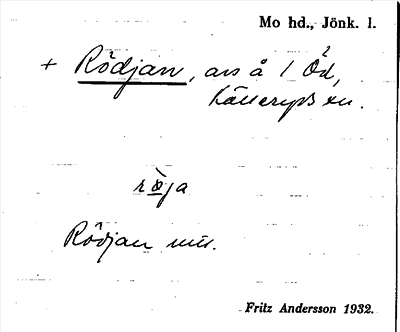 Mo hd., Jönk. l.
+ Rödjan, avs å 1 Öd, 2
Källeryds sn.
röja
Rödjan mu.
Fritz Andersson 1932.